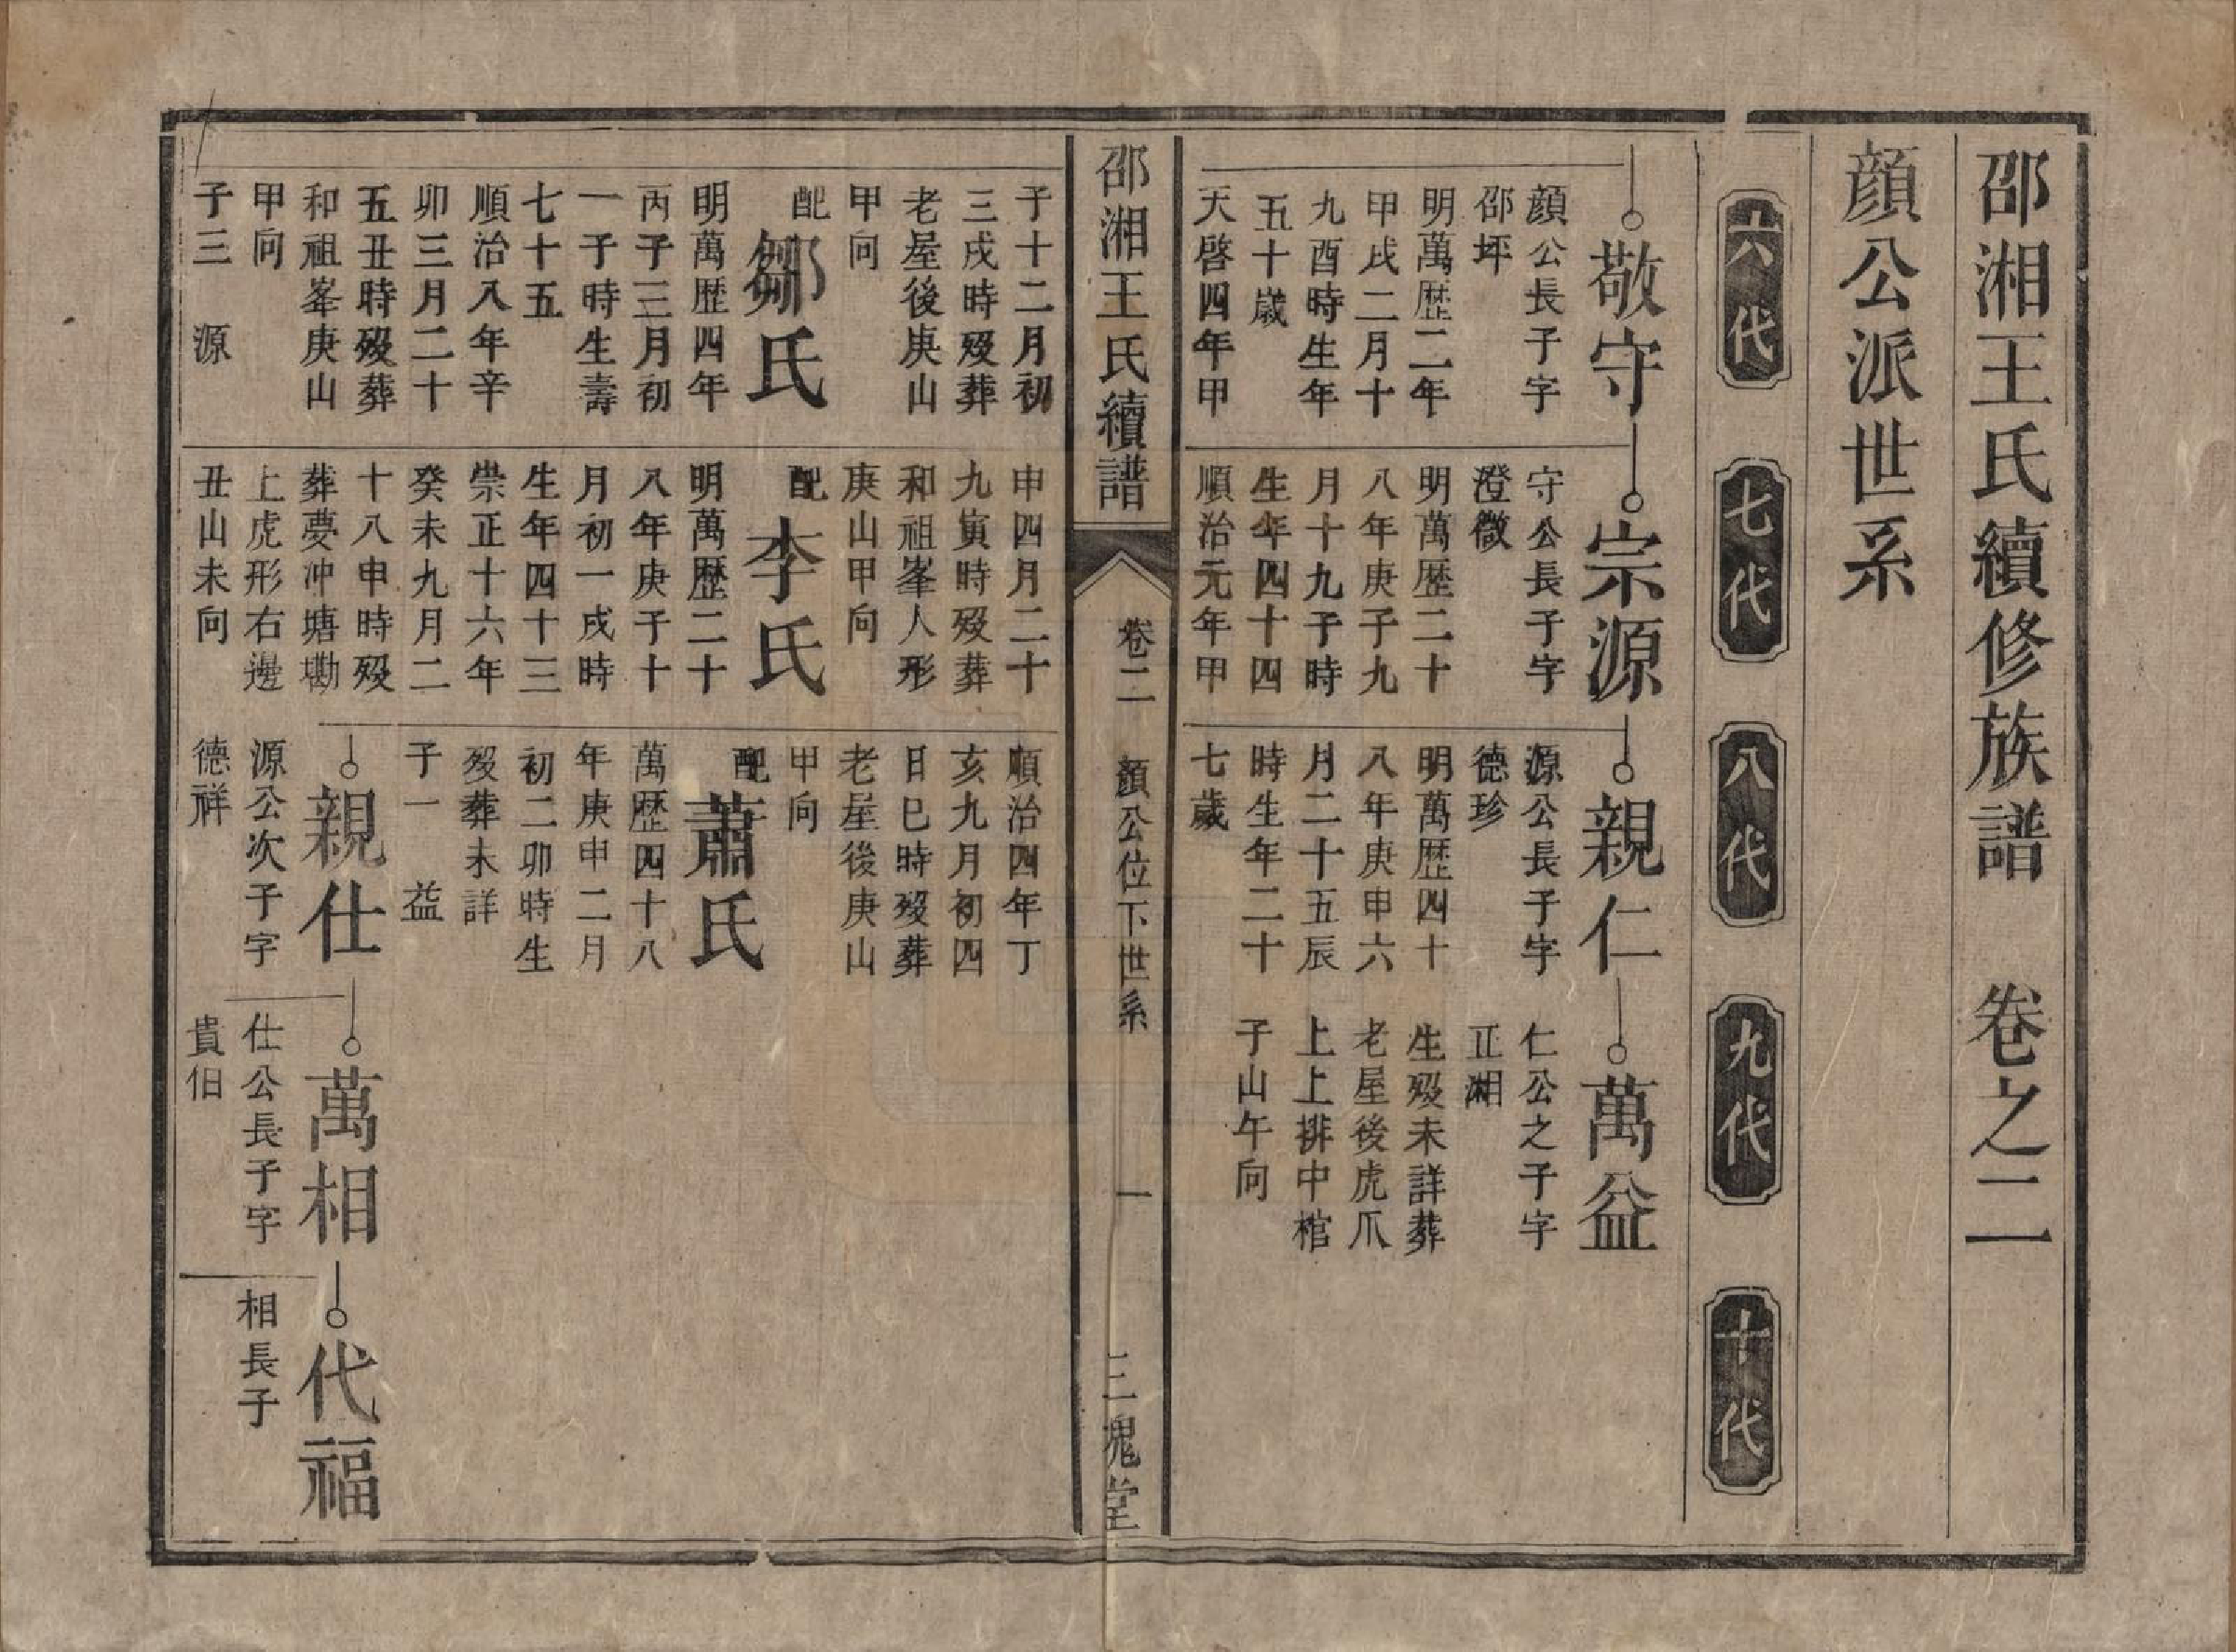 邵湘王氏續修族譜　卷之二
顔公派世系
六代
七代
八代
九代
十代
敬守
顔公長子字
邵坪
明萬歴二年
甲戌二月十
九酉時生年
五十歲
天啓四年甲
子十二月初
三戌時殁葬
老屋後庚山
甲向
配鄒氏
明萬歴四年
丙子三月初
一子時生壽
七十五
順治八年辛
卯三月二十
五丑時殁葬
和祖峯庚山
甲向
子三　源
宗源
守公長子字
澄徵
明萬歴二十
八年庚子九
月十九子時
生年四十四
順治元年甲
申四月二十
九寅時殁葬
和祖峯人形
庚山甲向
配李氏
明萬歴二十
八年庚子十
月初一戌時
生年四十三
崇正十六年
癸未九月二
十八申時殁
葬夢冲塘墈
上虎形右邊
丑山未向
親仁
源公長子字
德珍
明萬歴四十
八年庚申六
月二十五辰
時生年二十
七歲
順治四年丁
亥九月初四
日巳時殁葬
老屋後庚山
甲向
配蕭氏
萬歴四十八
年庚申二月
初二卯時生
殁葬未詳
子一　益
親仕
源公次子字
德祥
萬益
仁公之子字
正湘
生殁未詳葬
老屋後虎爪
上上排中棺
子山午向
萬相
仕公長子字
貴伯
代福
相長子
邵湘王氏續譜
卷二　顔公位下世系
一
三槐堂